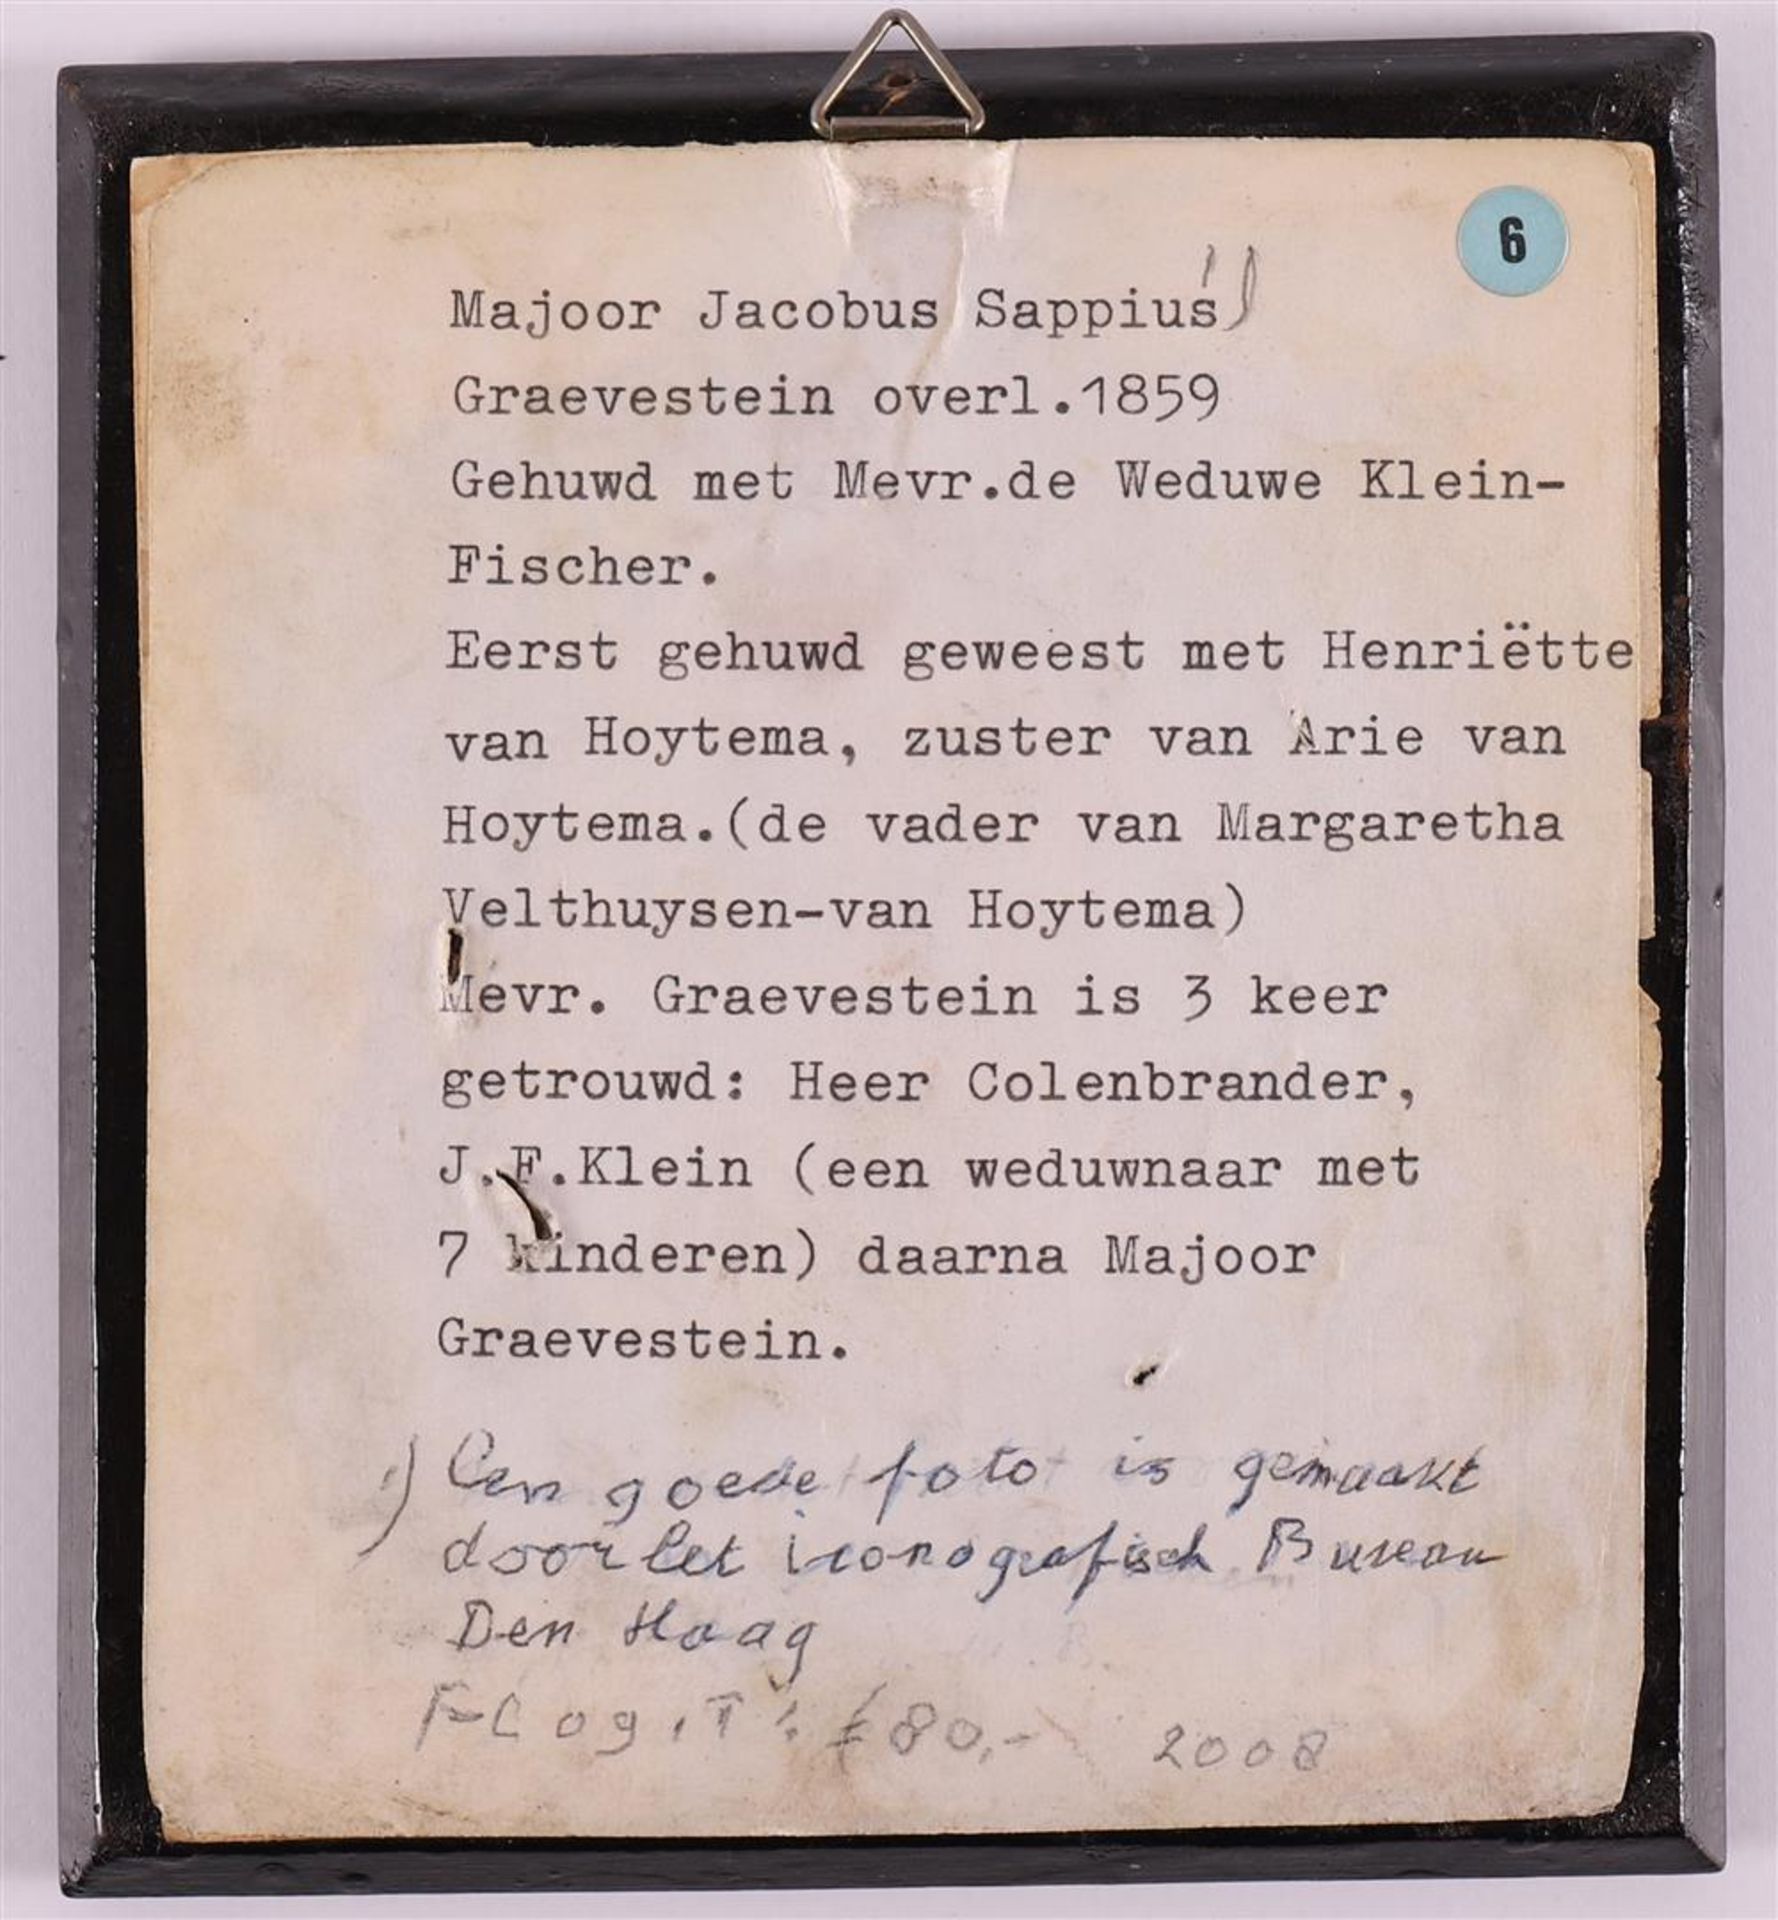 6
Majoor Jacobus Sappius 1)
Graevestein overl.1859
Gehuwd met Mevr.de Weduwe Klein-
Fischer.
Eerst gehuwd geweest met Henriëtte
van Hoytema, zuster van Arie van
Hoytema.(de vader van Margaretha
Velthuysen-van Hoytema)
Mevr. Graevestein is 3 keer
getrouwd: Heer Colenbrander,
J.F.Klein (een weduwnaar met
7 kinderen) daarna Majoor
Graevestein.
1) Een goede foto is gemaakt
door het iconografisch Bureau
Den Haag
80,- 2008